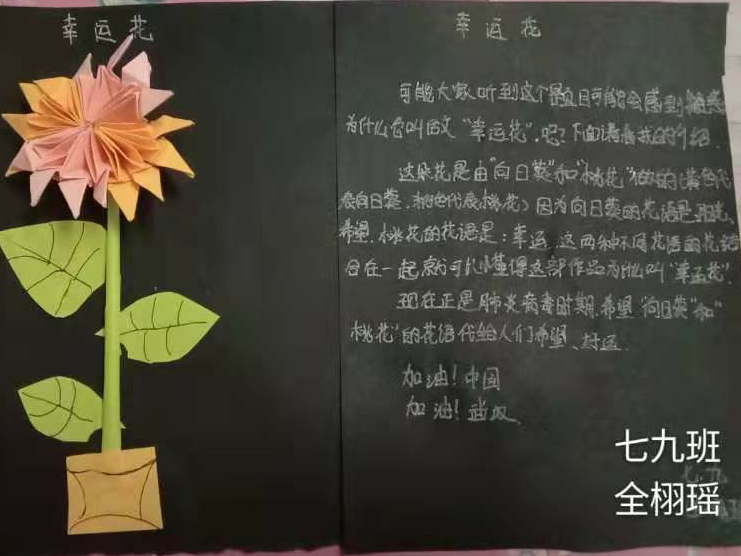 幸运花
幸运花
可能大家听到这个题目可能会感到疑惑
为什么会叫做"幸运花"呢?下面请看我的介绍.
这朵花是由"向日葵"和"桃花"做的(黄色代
表向日葵.桃色代表桃花)因为向日葵的花语是
希望.桃花的花语是:幸运.这两种不同花语的花结
合在一起就可以懂得这部作品为什么叫"幸运花".
现在正是肺炎病毒时期.希望"向日葵"和"
桃花"的花语代给人们希望、好运.
加油!中国
加油!武汉
七九班
全栩瑶
七九